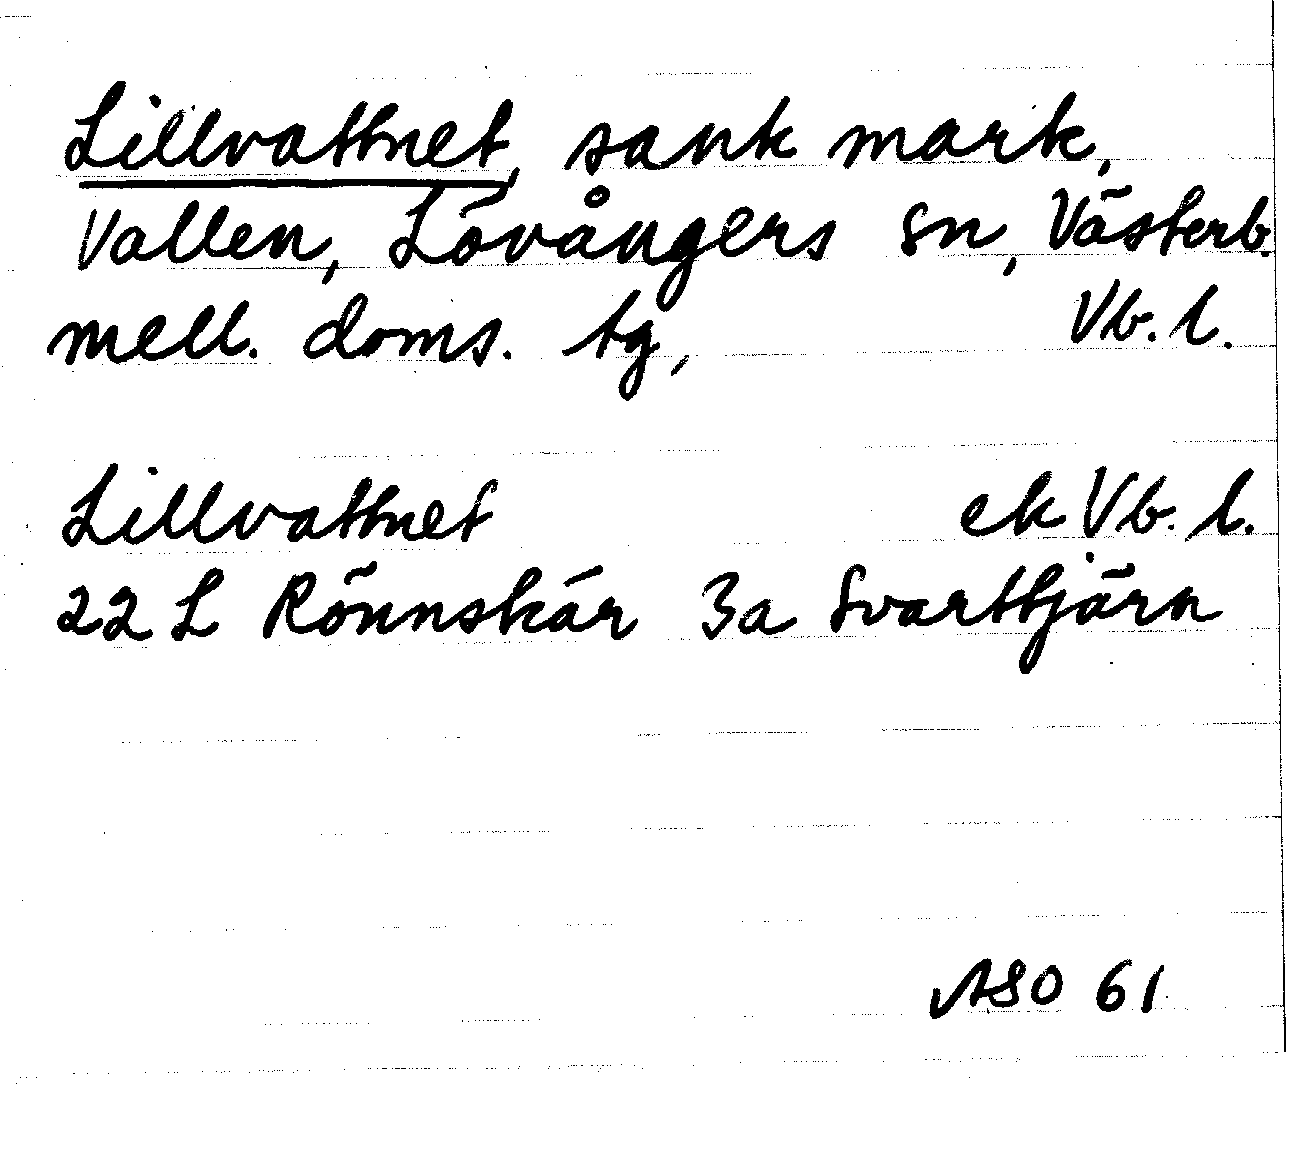 Lillvattnet, sank mark,
Vallen, Lövångers sn, Västerb.
mell. doms. tg, Vb. l.
Lillvattnet ek Vb. l.
22 L Rönnskär 3a Svarttjärn
ASO 61